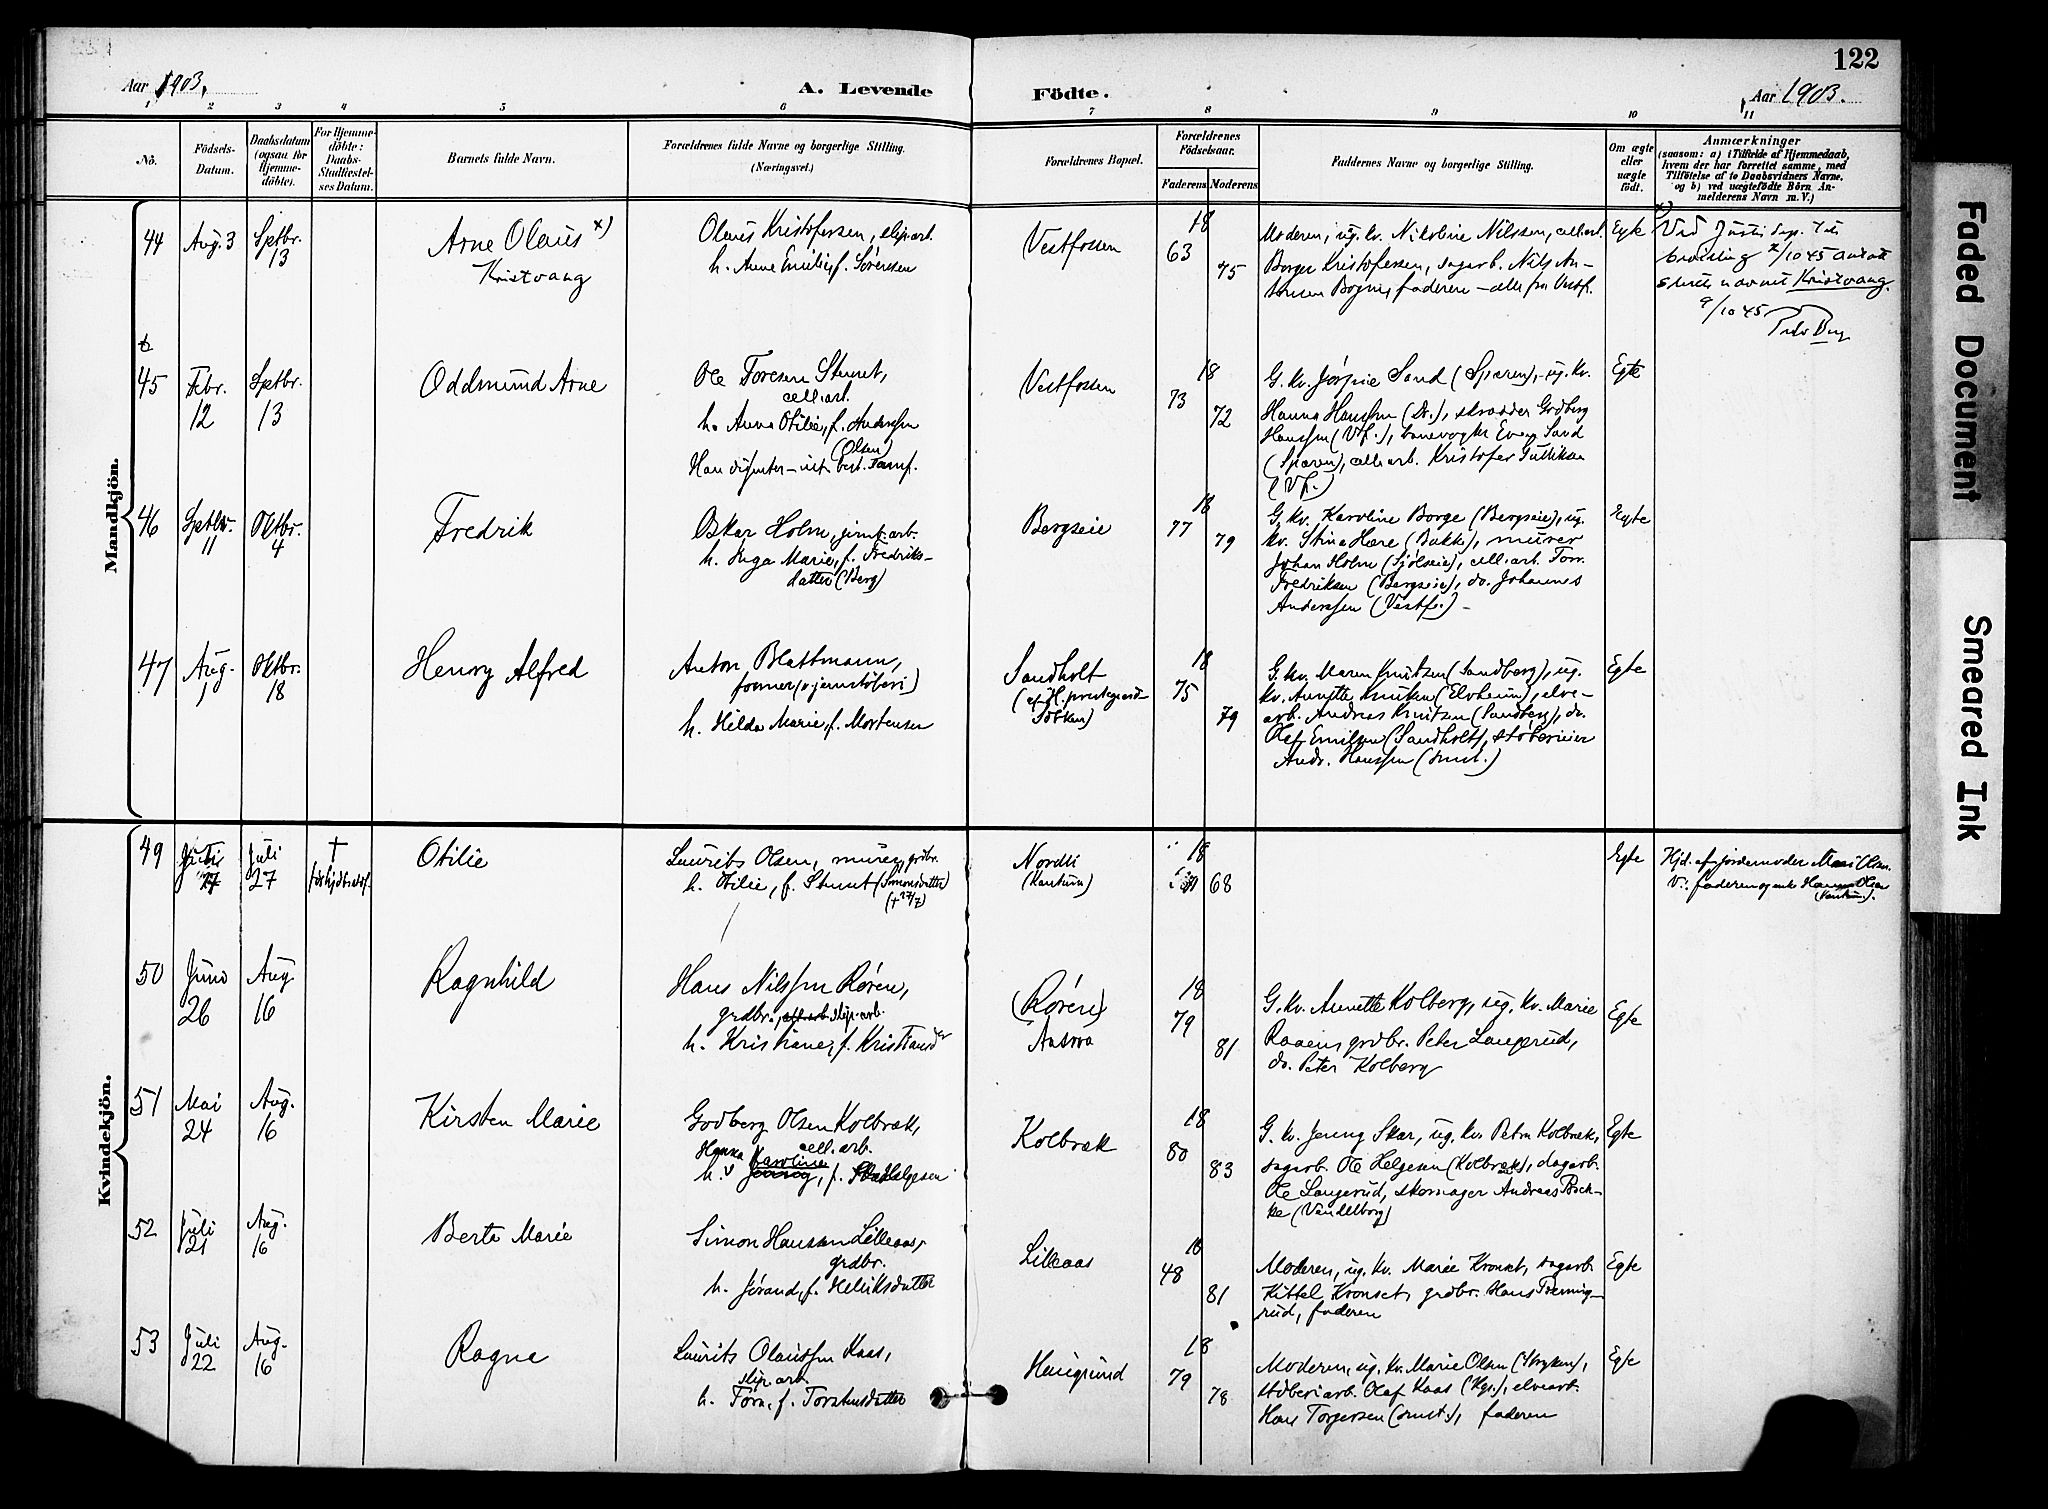 122
Aar 1903.
A. Levende Födte.
Aar 1903.
1 2 3 4 5 6 7 8 9 10 11
No.
Födsels-
Datum.
Daabsdatum
(ogsaa for
Hjemme-
döbte).
For Hjemme-
döbte:
Daabs-
Stadfæstel-
ses Datum.
Barnets fulde Navn.
Forældrenes fulde Navne og borgerlige Stilling.
(Næringsvei.)
Forældrenes Bopæl.
Forældrenes
Födselsaar.
Faderens
Moderens
Faddernes Navne og borgerlige Stilling.
Om ægte
eller
uægte
født.
Anmærkninger
(saasom: a) i Tilfælde af Hjemmedaab,
hvem der har forrettet samme, med
Tilföielse af to Daabsvidners Navne,
og b) ved uægtefödte Börn An-
melderens Navn m. V.)
Mandkjön.
44
Aug. 3
Septbr.
13
Arne Olaus x)
Kristvang
Olaus Kristofersen, slip.arb.
h. Anne Emilie, f. Sørensen
Vestfossen
18
63
75
Moderen, ug. kv. Nikoline Nilssen, cell.arb.
Borger Kristofersen, sagarb. Nils An-
faderen – alle fra Vestf.
Egte
x)
Ved Justisdep.
10 45 antatt
navnet Kristvang.
9/10 45
45
Febr.
12
Septbr.
13
Oddmund Arne
Ole Toresen Stenset,
cell.arb.
h. Anna Otilie, f. Anderssen
(Olsen)
Vestfossen
18
73
72
G. kv. Jørgine Sand (Sparen), ug. kv.
Hanna Hanssen (Do.), skrædder Godberg
Hanssen (Vf.), banevogter Even Sand
(Sparen), cell.arb. Kristofer
(Vf.)
Egte
46
Septbr.
11
Oktbr.
4
Fredrik
Oskar Holm, jernb.arb.
h. Inga Marie, f. Fredriks-
datter (Berg)
Bergseie
18
77
79
G. kv. Karoline Borge (Bergseie), ug.
kv. Stina Høre (Bakke), murer
Johan Holm (Fjøseie), cell.arb. Torv.
Fredriksen (Bergseie), do. Johannes
Anderssen (Vestf.) –
Egte
47
Aug.
1
Oktbr.
18
Henry Alfred
Anton Blattmann,
former (v. jernstøberi)
h. Hilda Marie, f. Mortensen
Sandholt
18
75
79
G. kv. Maren Knutsen (Sandberg), ug.
kv. Annette Knutsen (Elvheim), elve-
arb. Andreas Knutsen (Sandberg), do.
Olaf Emilsen (Sandholt), støberieier
Andr. Hanssen (smst.)
Egte
Kvindekjön.
49
Juli
27
Juli
27
†
Otilie
Laurits Olsen, murer, grdbr.
h. Otilie, f. Stenset (Simonsdatter)
(† 27/7)
Nordli
18
68
Egte
Hjd. af jordemoder Mari Olsen.
V.: faderen og enke Olsen
50
Juni
26
Aug
16
Ragnhild
Hans Nilssen Røren,
grdbr., cell.arb slip.arb.
h. Kristiane, f. Kristiansdr
(Røren)
18
79
81
G. kv. Annette Kolberg, ug. kv. Marie
Raaen, grdbr. Peter Langerud,
do. Peter Kolberg
Egte
51
Mai
24
Aug.
16
Kirsten Marie
Godberg Olsen Kolbræk,
cell.arb.
Hanna Karoline
h. Jenny, f. Helgesen
Kolbræk
18
80
83
G. kv. Jenny Skar, ug. kv. Petra Kolbræk,
sagarb. Ole Helgesen (Kolbræk), dagarb.
Ole Langerud, skomager Andreas Bræk-
ke (Vandelborg)
Egte
52
Juli
21
Aug.
16
Berta Marie
Simon Hansen Lilleaas,
grdbr.
h. Jørand, f. Henriksdatter
Lilleaas
18
48
81
Moderen, ug. kv. Marie Kronset, sagarb.
Kittel Kronset, grdbr. Hans Trøming-
rud, faderen
Egte
53
Juli
22
Aug.
16
Ragne
Laurits Olaussen Kaas,
slip.arb.
h. Tora, f. Torstensdatter
Haugrund
18
79
78
Moderen, ug. kv. Marie Olsen (Stryken),
støberiarb. Olaf Kaas (Hgs.), elvearb.
Hans Torgersen (smst.), faderen
Egte
Faded Document
Smeared Ink